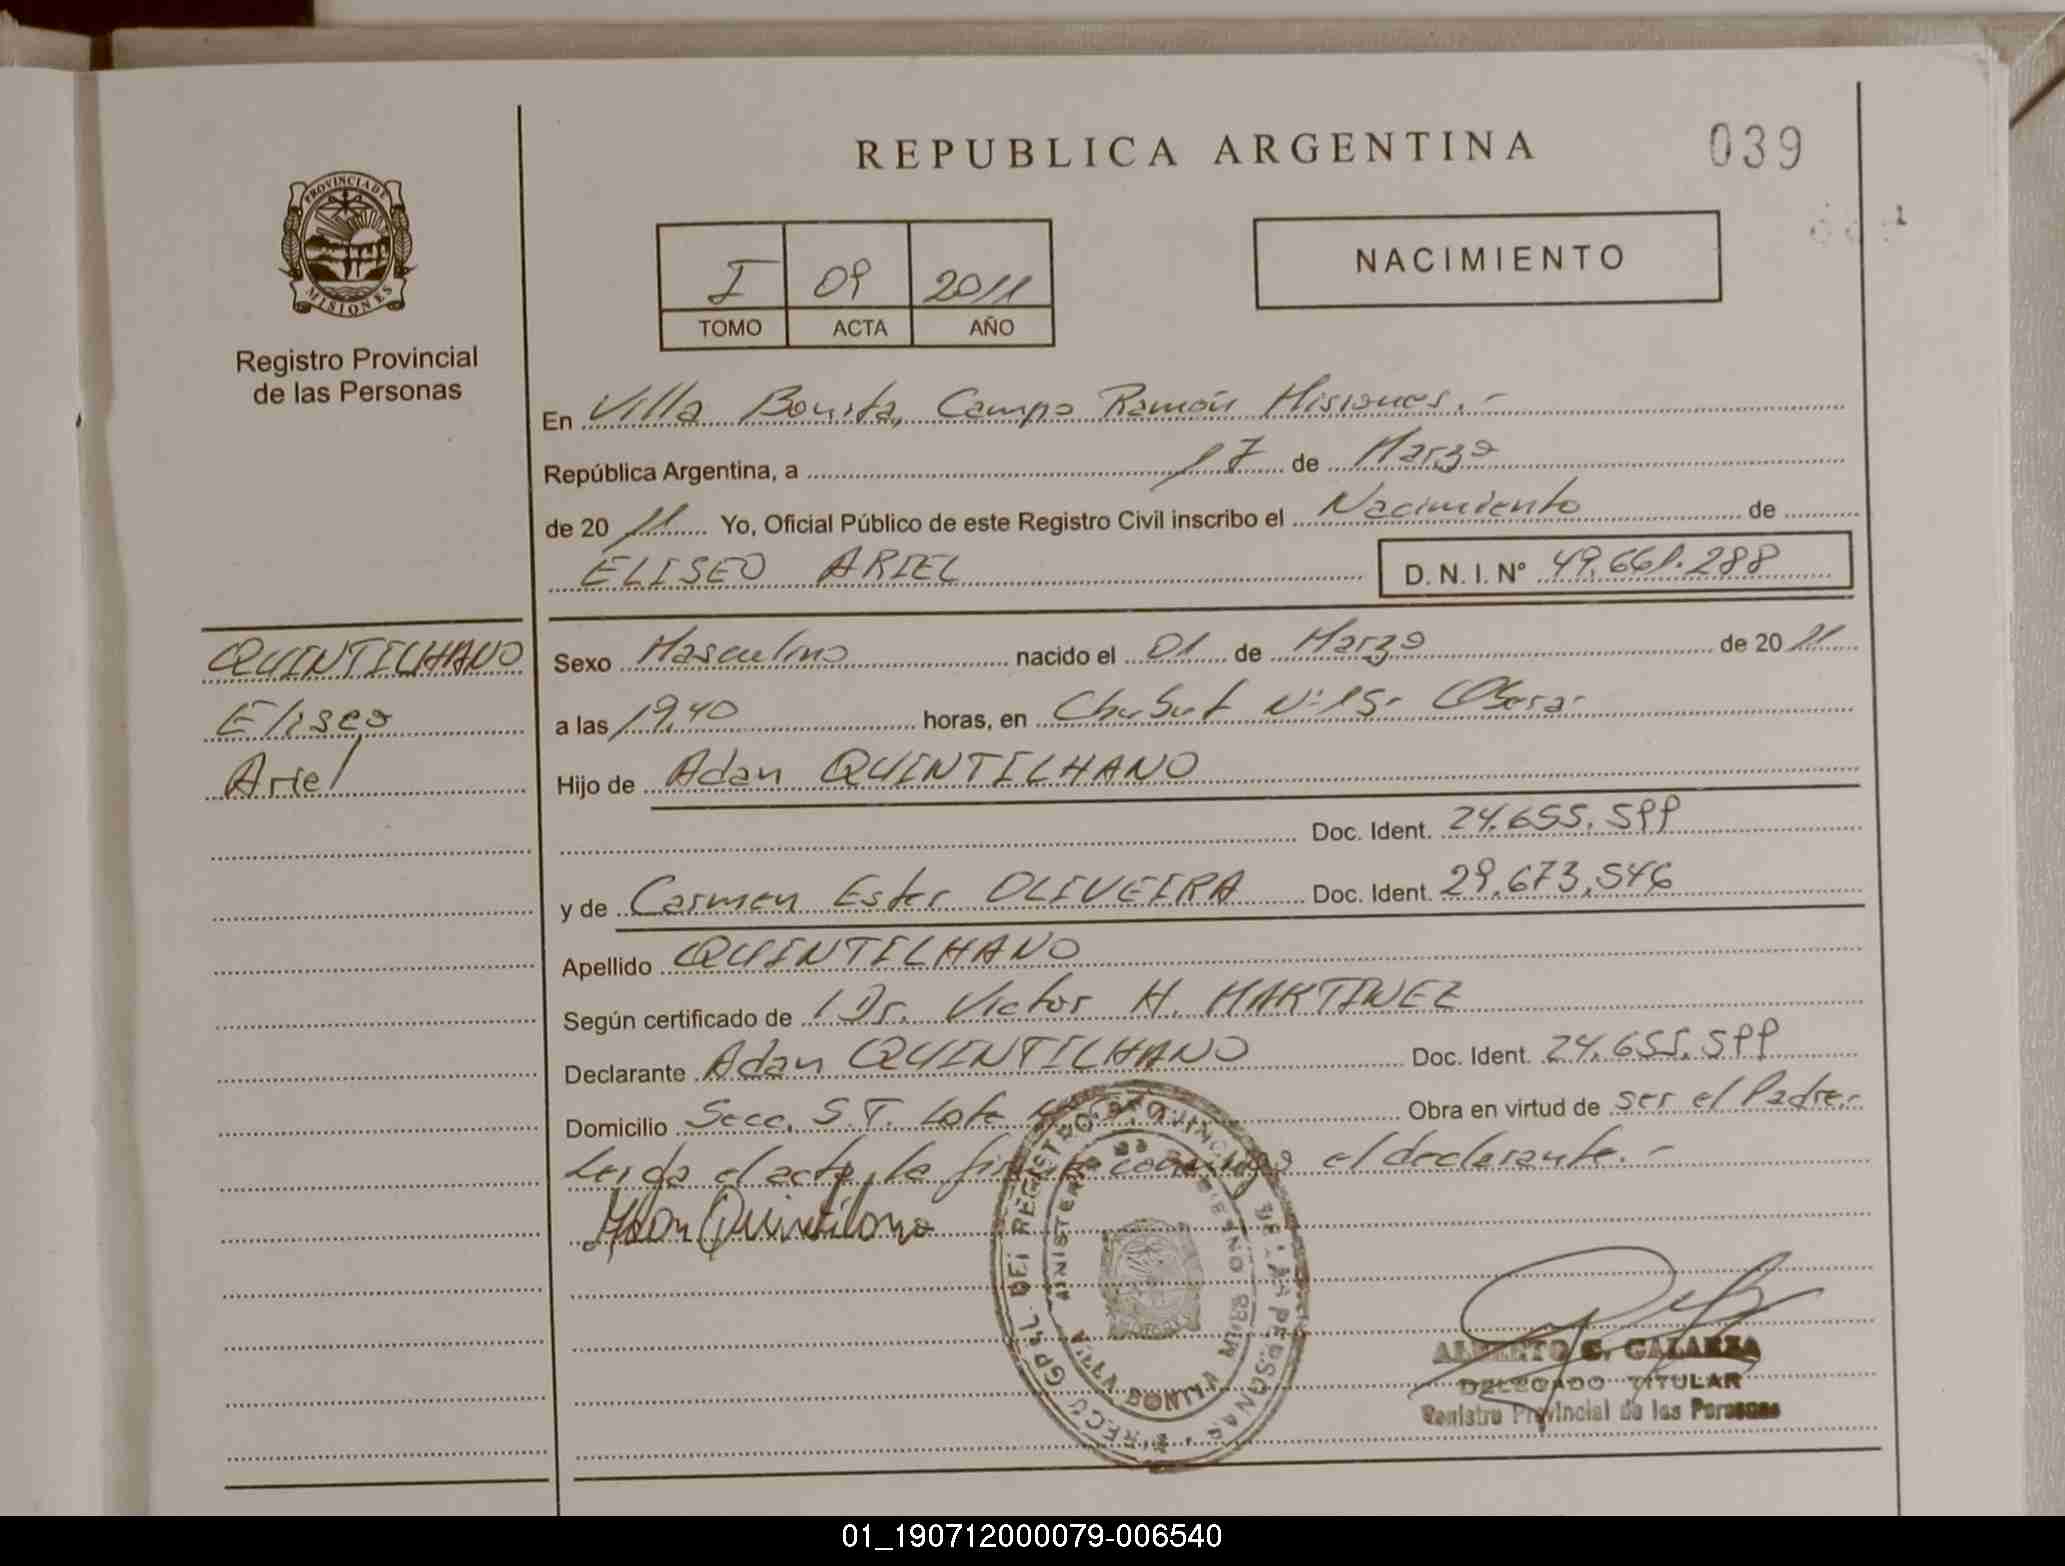 REPUBLICA ARGENTINA
039
PROVINCIA DE
MISIONES
Registro Provincial
de las Personas
I 09 2011
TOMO ACTA AÑO
NACIMIENTO
En Villa Bonita, Campo Ramón Misiones.-
República Argentina, a 17 de Marzo
de 20 11 Yo, Oficial Público de este Registro Civil inscribo el Nacimiento de
ELISEO ARIEL D.N.I.Nº 49.661.288
QUINTILHANO
Eliseo
Ariel
Sexo Masculino nacido el 01 de Marzo de 20 11
a las 19,40 horas, en Chubut Nº 15. Obera.
Hijo de Adan QUINTILHANO
Doc. Ident. 24.655.599
y de Carmen Ester OLIVEIRA Doc. Ident. 29.673.546
Apellido QUINTILHANO
Según certificado de Dr. Victor H. MARTINEZ
Declarante Adan QUINTILHANO Doc. Ident. 24.655.599
Domicilio Secc. S.T. Lote Obra en virtud de ser el Padre.-
Leida el acta, la firma conmigo el declarante.-
Adan Quintilano
ALBERTO C. GALARZA
DELEGADO TITULAR
Registro Provincial de las Personas
01_190712000079-006540